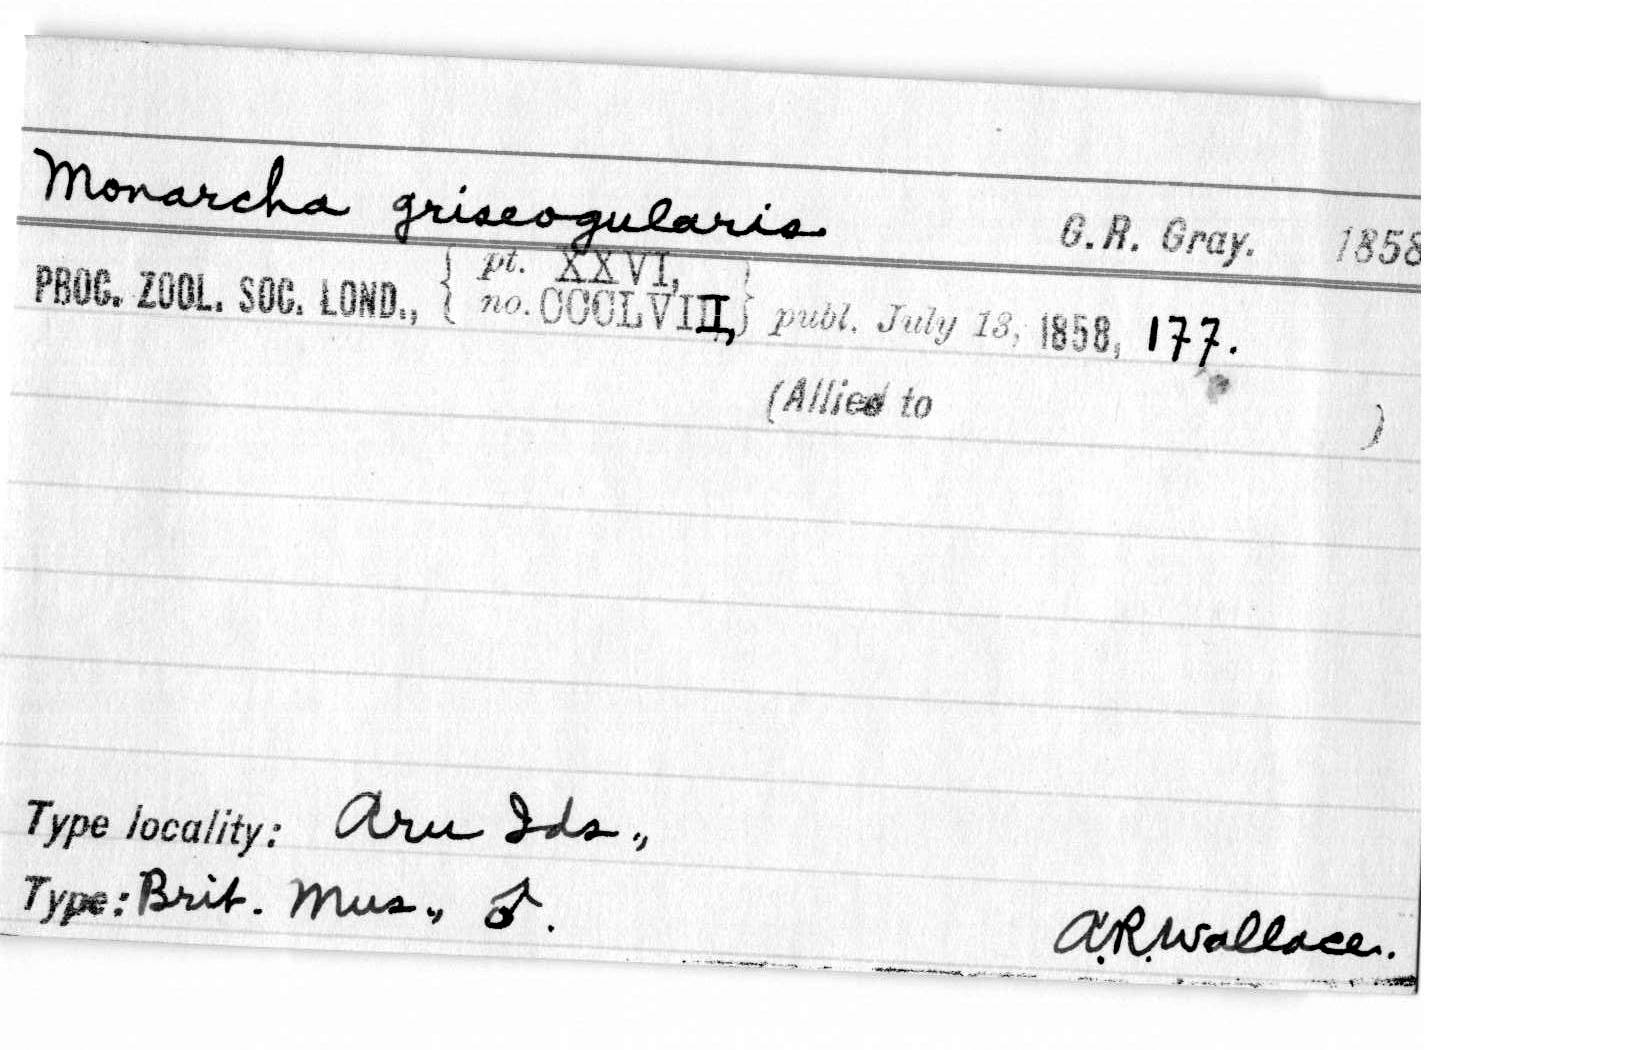 Monarcha griseogularis G.R. Gray. 1858
PROC. ZOOL. SOC. LOND., { pt. XXVI, no. CCCLVIII, } publ. July 13, 1858, 177.
(Allied to )
Type locality: Aru Ids.,
Type: Brit. Mus., ♂. A.R. Wallace.